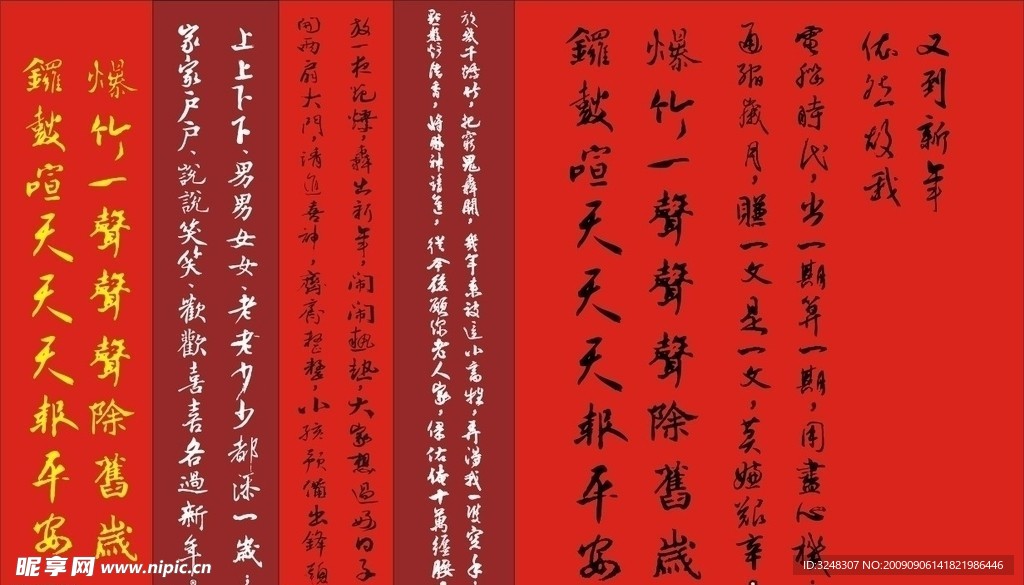 又到新年
依然故我
電腦時代，出一期算一期，用盡心機
通縮歲月，賺一文是一文，莫嫌艱辛
爆竹一聲聲聲除舊歲
鑼鼓喧天天天報平安
放幾千爆竹，把窮鬼轟開，幾年來被這小畜牲，弄得我一雙空手，
點數炷清香，將財神請進，從今後願你老人家，保佑俺十萬纏腰。
放一夜花爆，轟出新年，鬧鬧熱熱，大家想過好日子
開兩扇大門，請進喜神，齊齊整整，小孩預備出鋒頭
上上下下、男男女女、老老少少都添一歲；
家家戶戶、說說笑笑、歡歡喜喜各過新年。
爆竹一聲聲聲除舊歲
鑼鼓喧天天天報平安
昵享网 www.nipic.cn
ID:3248307 NO:20090906141821986446